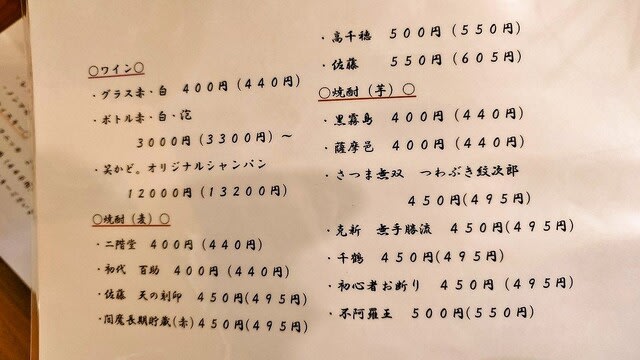 ○ワイン○
・グラス赤・白 400円(440円)
・ボトル赤・白・泡
3000円(3300円)~
・笑かど。オリジナルシャンパン
12000円(13200円)
○焼酎(麦)○
・二階堂 400円(440円)
・初代 百助 400円(440円)
・佐藤 天の刻印 450円(495円)
・閻魔長期貯蔵(赤)450円(495円)
・高千穂 500円(550円)
・佐藤 550円(605円)
○焼酎(芋)○
・黒霧島 400円(440円)
・薩摩邑 400円(440円)
・さつま無双 つわぶき紋次郎
450円(495円)
・克斬 無手勝流 450円(495円)
・千鶴 450円(495円)
・初心者お断り 450円(495円)
・不阿羅王 500円(550円)